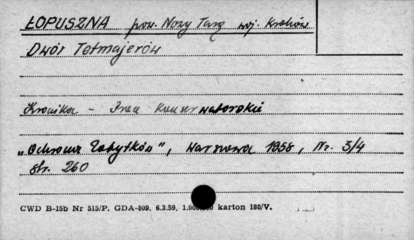 ŁOPUSZNA pow. Nowy Targ woj. Kraków
Dwór Tetmajerów
Kronika - Prace Konserwatorskie
"Ochrona Zabytków", Warszawa 1958, Nr. 3/4
str. 260
CWD B-15b Nr 515/P. GDA-809. 6.3.59. karton 180/V.